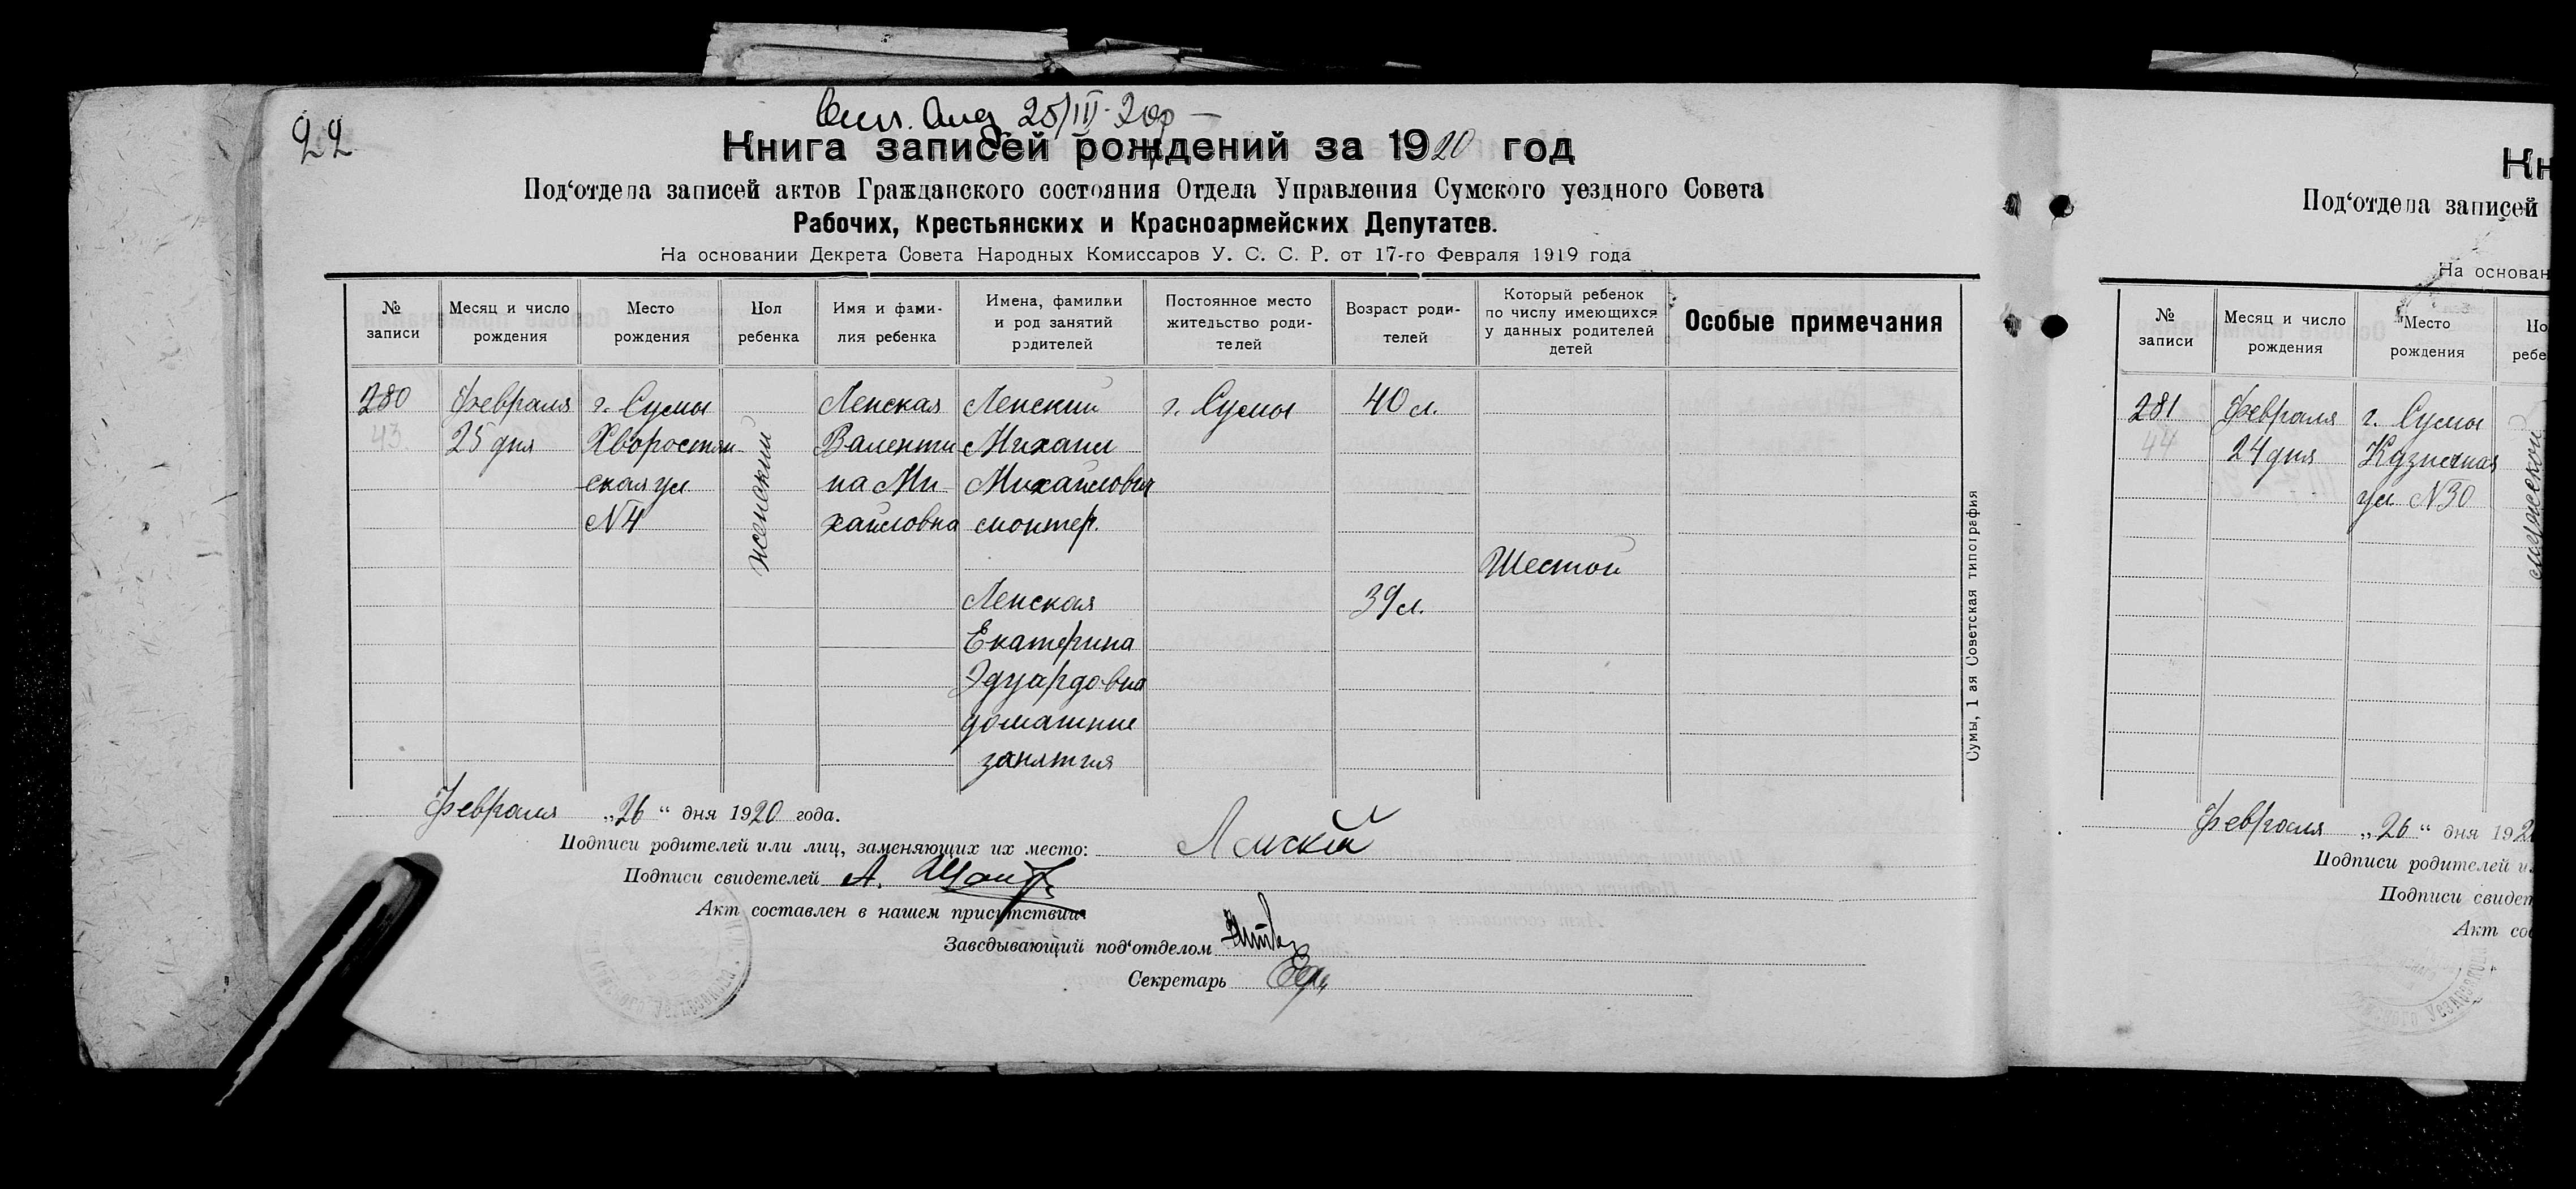 22
25/III-20
Книга записей рождений за 1920 год
Под‘отдела записей актов Гражданского состояния Отдела Управления Сумского уездного Совета
Рабочих, Крестьянских и Красноармейских Депутатов.
На основании Декрета Совета Народных Комиссаров У. С. С. Р. от 17-го Февраля 1919 года
№ записи
Месяц и число рождения
Место рождения
Пол ребенка
Имя и фами-
лия ребенка
Имена, фамилии
и род занятий
родителей
Постоянное место
жительство роди-
телей
Возраст роди-
телей
Который ребенок
по числу имеющихся
у данных родителей
детей
Особые примечания
280
43
Февраля
25 дня
г. Сумы
Хворостян-
ская ул
N 4
женский
Ленская
Валенти
на Ми
хайловна
Ленский
Михаил
Михайлович
монтер.
Ленская
Екатерина
Эдуардовна
домашние
занятия
г. Сумы
40 л.
39 л.
Шестой
Февраля „26“ дня 1920 года.
Подписи родителей или лиц, заменяющих их место: Ленскій
Подписи свидетелей А.
Акт составлен в нашем присутствии:
Заведывающий под‘отделом
Секретарь
Сумы, 1 ая Советская типография
Кн
Под‘отдела записей
На основан
№ записи
Месяц и число рождения
Место рождения
По
ребе
281
44
Февраля
24 дня
г. Сумы
Кузнечная
ул. N 30
мужской
Февраля „26“ дня 192
Подписи родителей и
Подписи свидет
Акт со